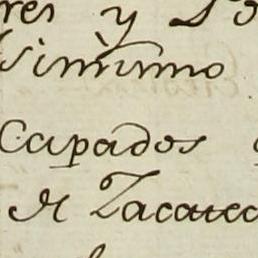 res y
simismo
Capados
de Zacatec